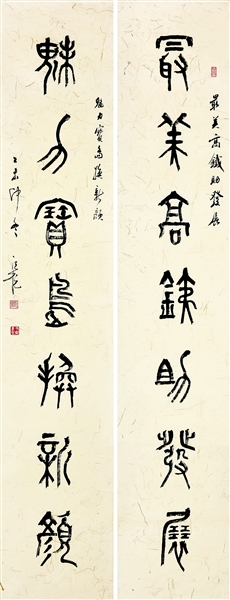 最美高銕助發展
最美高鐵助發展
魅力寶島換新顏
魅力寶島換新顏
乙未仲冬